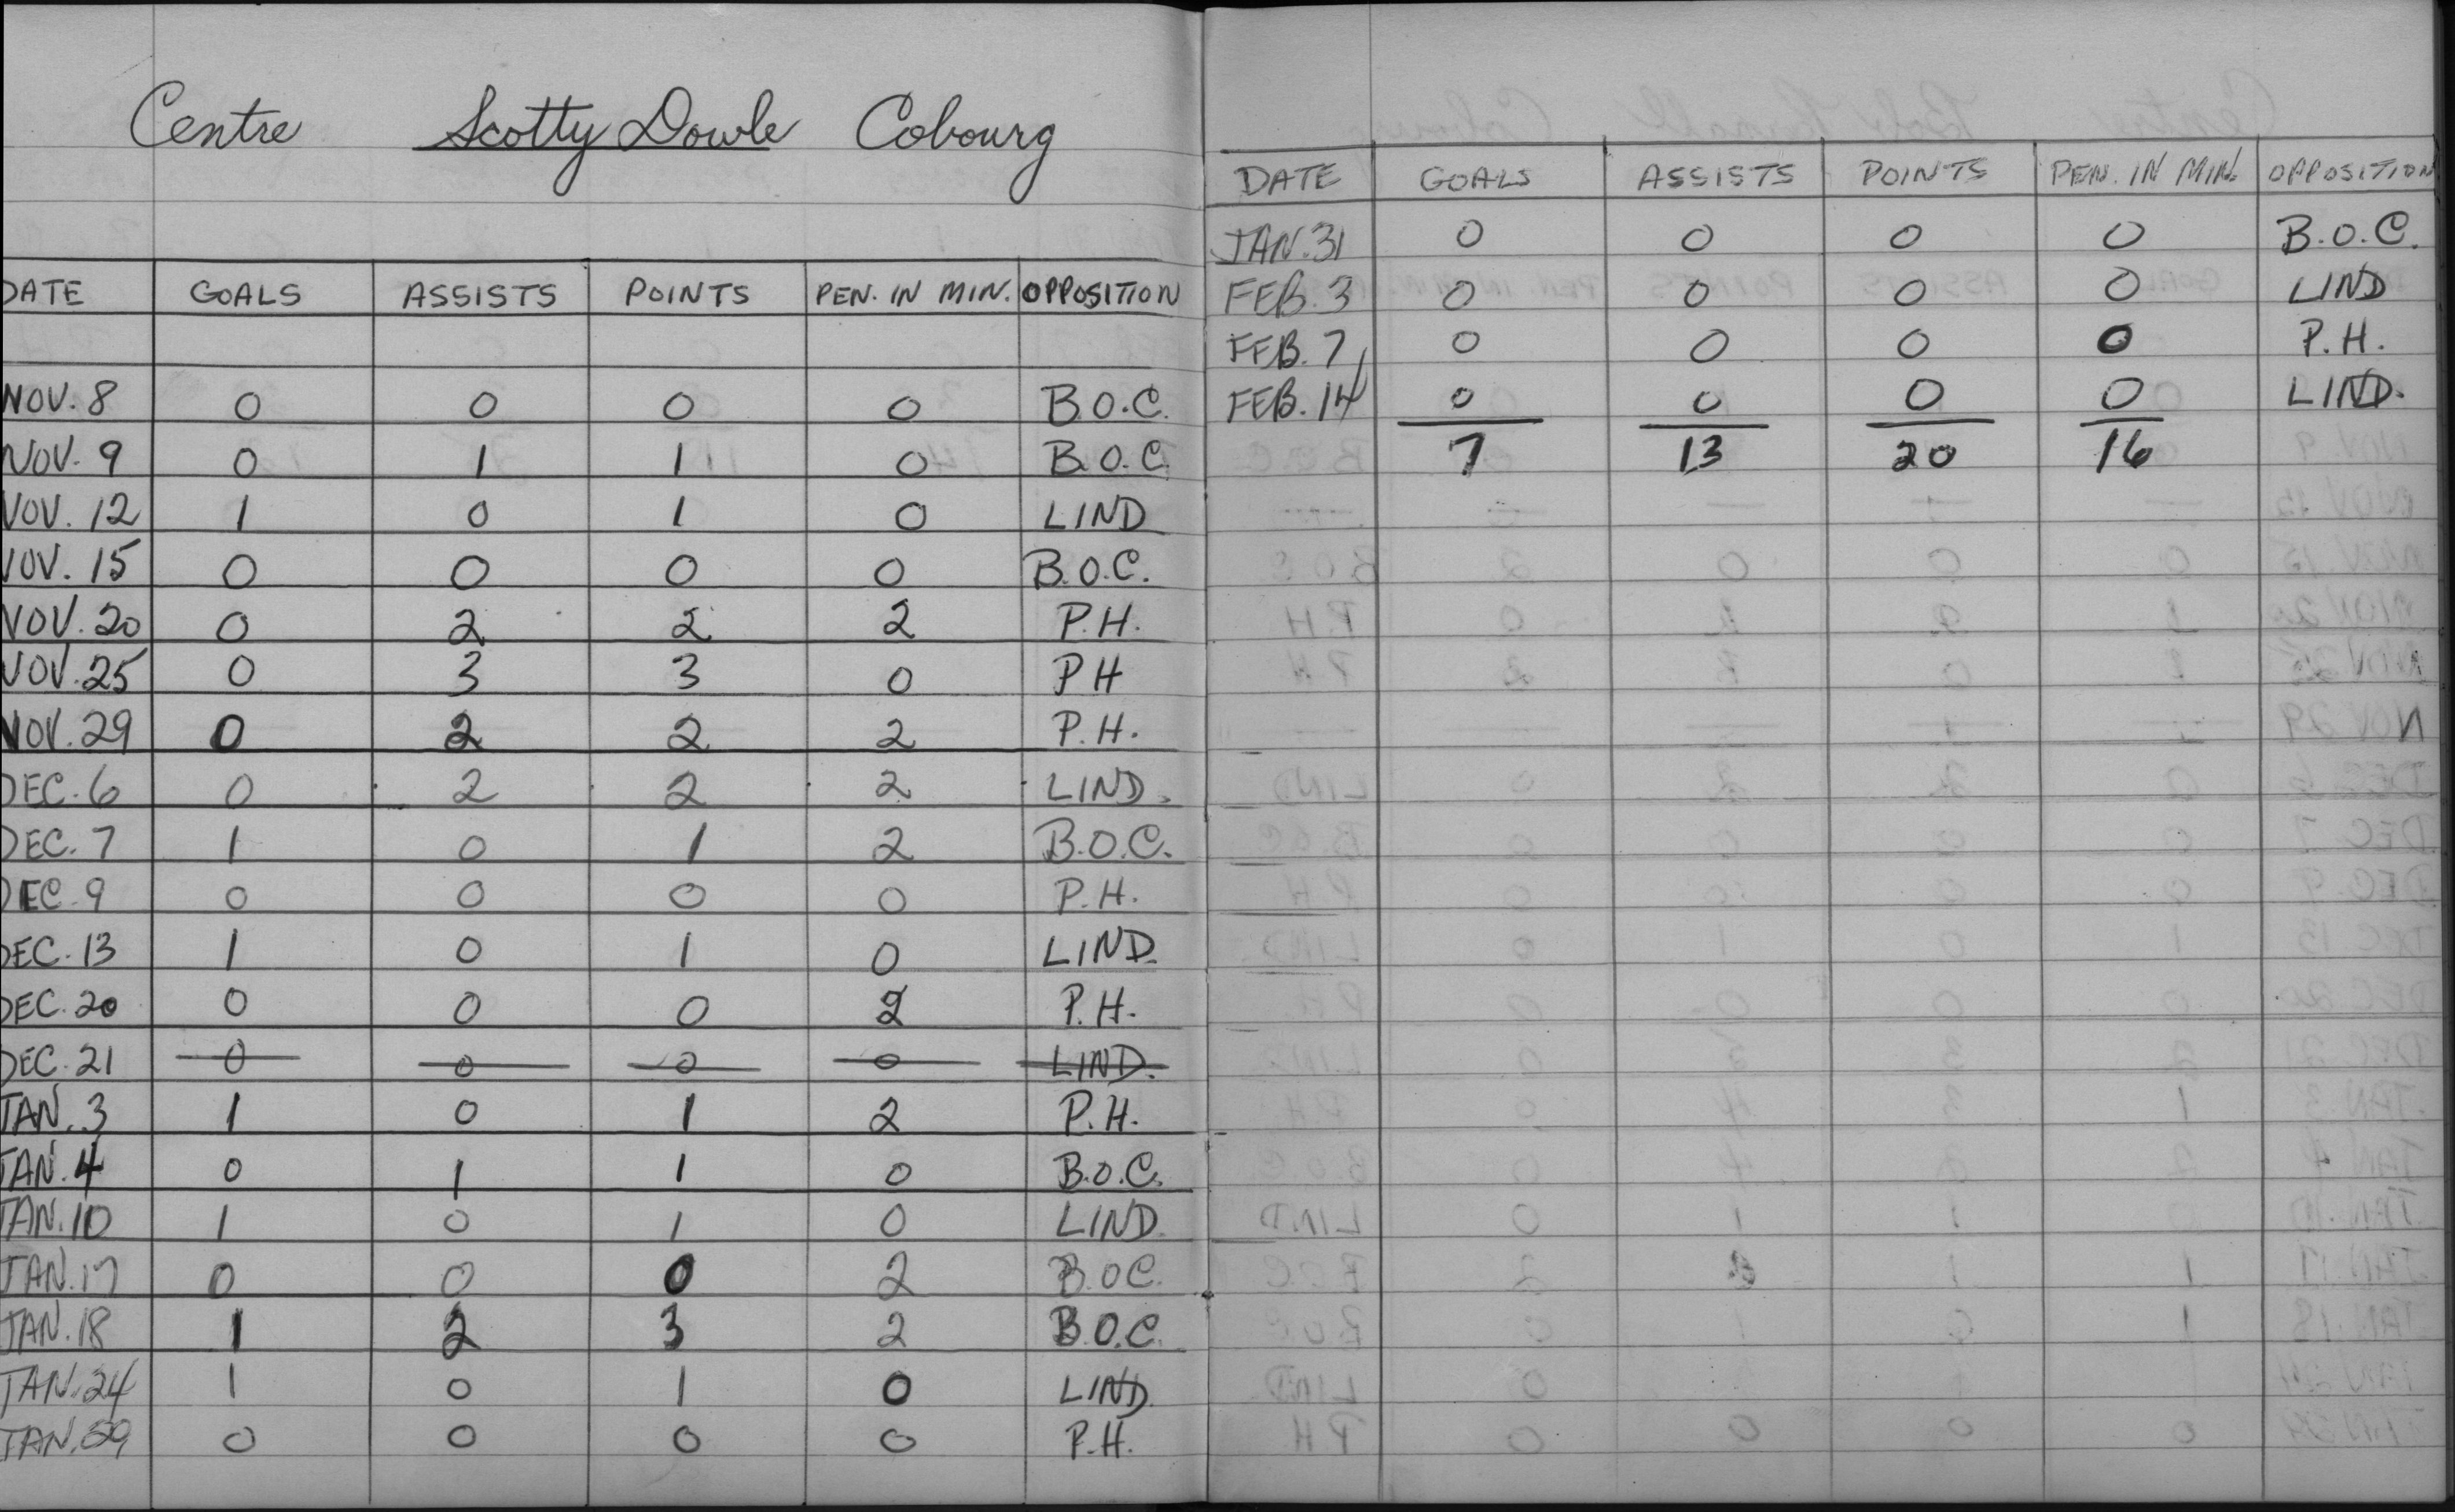 Centre Scotty Dowle Cobourg
DATE GOALS ASSISTS POINTS PEN. IN MIN. OPPOSITION
NOV. 8 0 0 0 0 B.O.C.
NOV. 9 0 1 1 0 B.O.C.
NOV. 12 1 0 1 0 LIND
NOV. 15 0 0 0 0 B.O.C.
NOV. 20 0 2 2 2 P.H.
NOV. 25 0 3 3 0 PH
NOV. 29 0 2 2 2 P.H.
DEC. 6 0 2 2 2 LIND.
DEC. 7 1 0 1 2 B.O.C.
DEC. 9 0 0 0 0 P.H.
DEC. 13 1 0 1 0 LIND.
DEC. 20 0 0 0 2 P.H.
DEC. 21 0 0 0 0 LIND.
JAN. 3 1 0 1 2 P.H.
JAN. 4 0 1 1 0 B.O.C.
JAN. 10 1 0 1 0 LIND.
JAN. 17 0 0 0 2 B.O.C.
JAN. 18 1 2 3 2 B.O.C.
JAN. 24 1 0 1 0 LIND
JAN. 29 0 0 0 0 P.H.
DATE GOALS ASSISTS POINTS PEN. IN MIN. OPPOSITION
JAN. 31 0 0 0 0 B.O.C.
FEB. 3 0 0 0 0 LIND
FEB. 7 0 0 0 0 P.H.
FEB. 14 0 0 0 0 LIND.
7 13 20 16